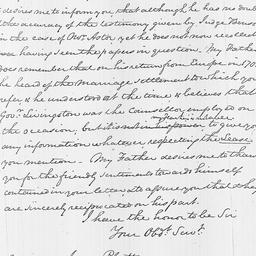 desires me to inform you that although he has no doubt
the accuracy of the testimony given by Judge Benson
in the case of Mr. Astor yet he does not now recollect
ever having seen the papers in question. My Father
does remember that on his return from Europe in 17
he heard of the Marriage settlement to which you
refer & he understood at the time & believes that
Gov.r Livingston was the Counsellor employed on
the occasion, but it is not in his power to give you
any information whatever respecting the Lease
you mention. My Father desires me to thank
you for the friendly sentiments towards himself
contained in your letter & to assure you that they
are sincerely reciprocated on his part.
I have the honor to be Sir
Your Obd.t Serv.t